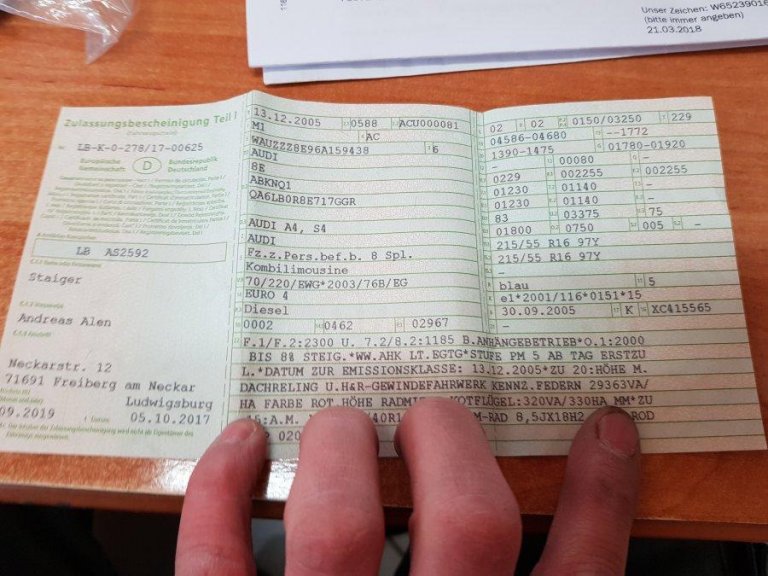 Unser Zeichen: W65239016
(bitte immer angeben)
21.03.2018
Zulassungsbescheinigung Teil I
(Fahrzeugschein)
LB-K-0-278/17-00625
Europäische Gemeinschaft D Bundesrepublik Deutschland
LB AS2592
Staiger
Andreas Alen
Neckarstr. 12
71691 Freiberg am Neckar
Ludwigsburg
09.2019 05.10.2017
13.12.2005 0588 ACU000081
M1 AC
WAUZZZ8E96A159438 6
AUDI
8E
ABKNQ1
QA6LB0R8E717GGR
AUDI A4, S4
AUDI
Fz.z.Pers.bef.b. 8 Spl.
Kombilimousine
70/220/EWG*2003/76B/EG
EURO 4
Diesel
0002 0462 02967
02 02 0150/03250 229
04586-04680 --1772
1390-1475 01780-01920
- 00080 -
0229 002255 002255
01230 01140 -
01230 01140 -
83 03375 75
01800 0750 005 -
215/55 R16 97Y
215/55 R16 97Y
-
blau 5
e1*2001/116*0151*15
30.09.2005 K XC415565
-
F.1/F.2:2300 U. 7.2/8.2:1185 B.ANHÄNGEBETRIEB*O.1:2000
BIS 8% STEIG.*WW.AHK LT.EGTG*STUFE PM 5 AB TAG ERSTZU
L.*DATUM ZUR EMISSIONSKLASSE: 13.12.2005*ZU 20:HÖHE M.
DACHRELING U.H&R-GEWINDEFAHRWERK KENNZ.FEDERN 29363VA/
HA FARBE ROT.HÖHE RADMI KOTFLÜGEL:320VA/330HA MM*ZU
15:A.M. 40R1 M-RAD 8,5JX18H2 ROD